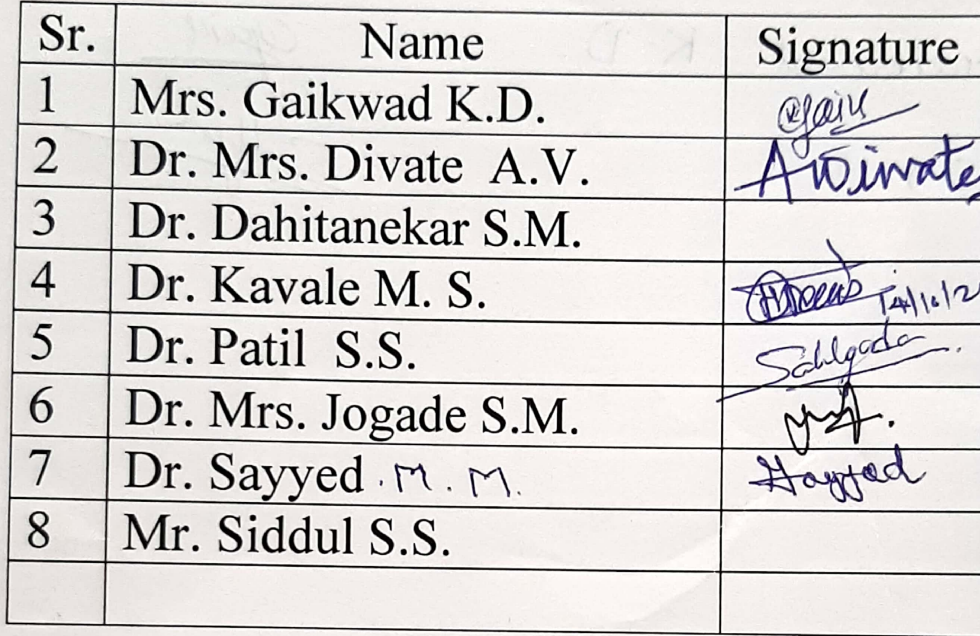 Sr. Name Signature
1 Mrs. Gaikwad K.D.
2 Dr. Mrs. Divate A.V. A Divate
3 Dr. Dahitanekar S.M.
4 Dr. Kavale M. S.
5 Dr. Patil S.S.
6 Dr. Mrs. Jogade S.M.
7 Dr. Sayyed . M . M.
8 Mr. Siddul S.S.